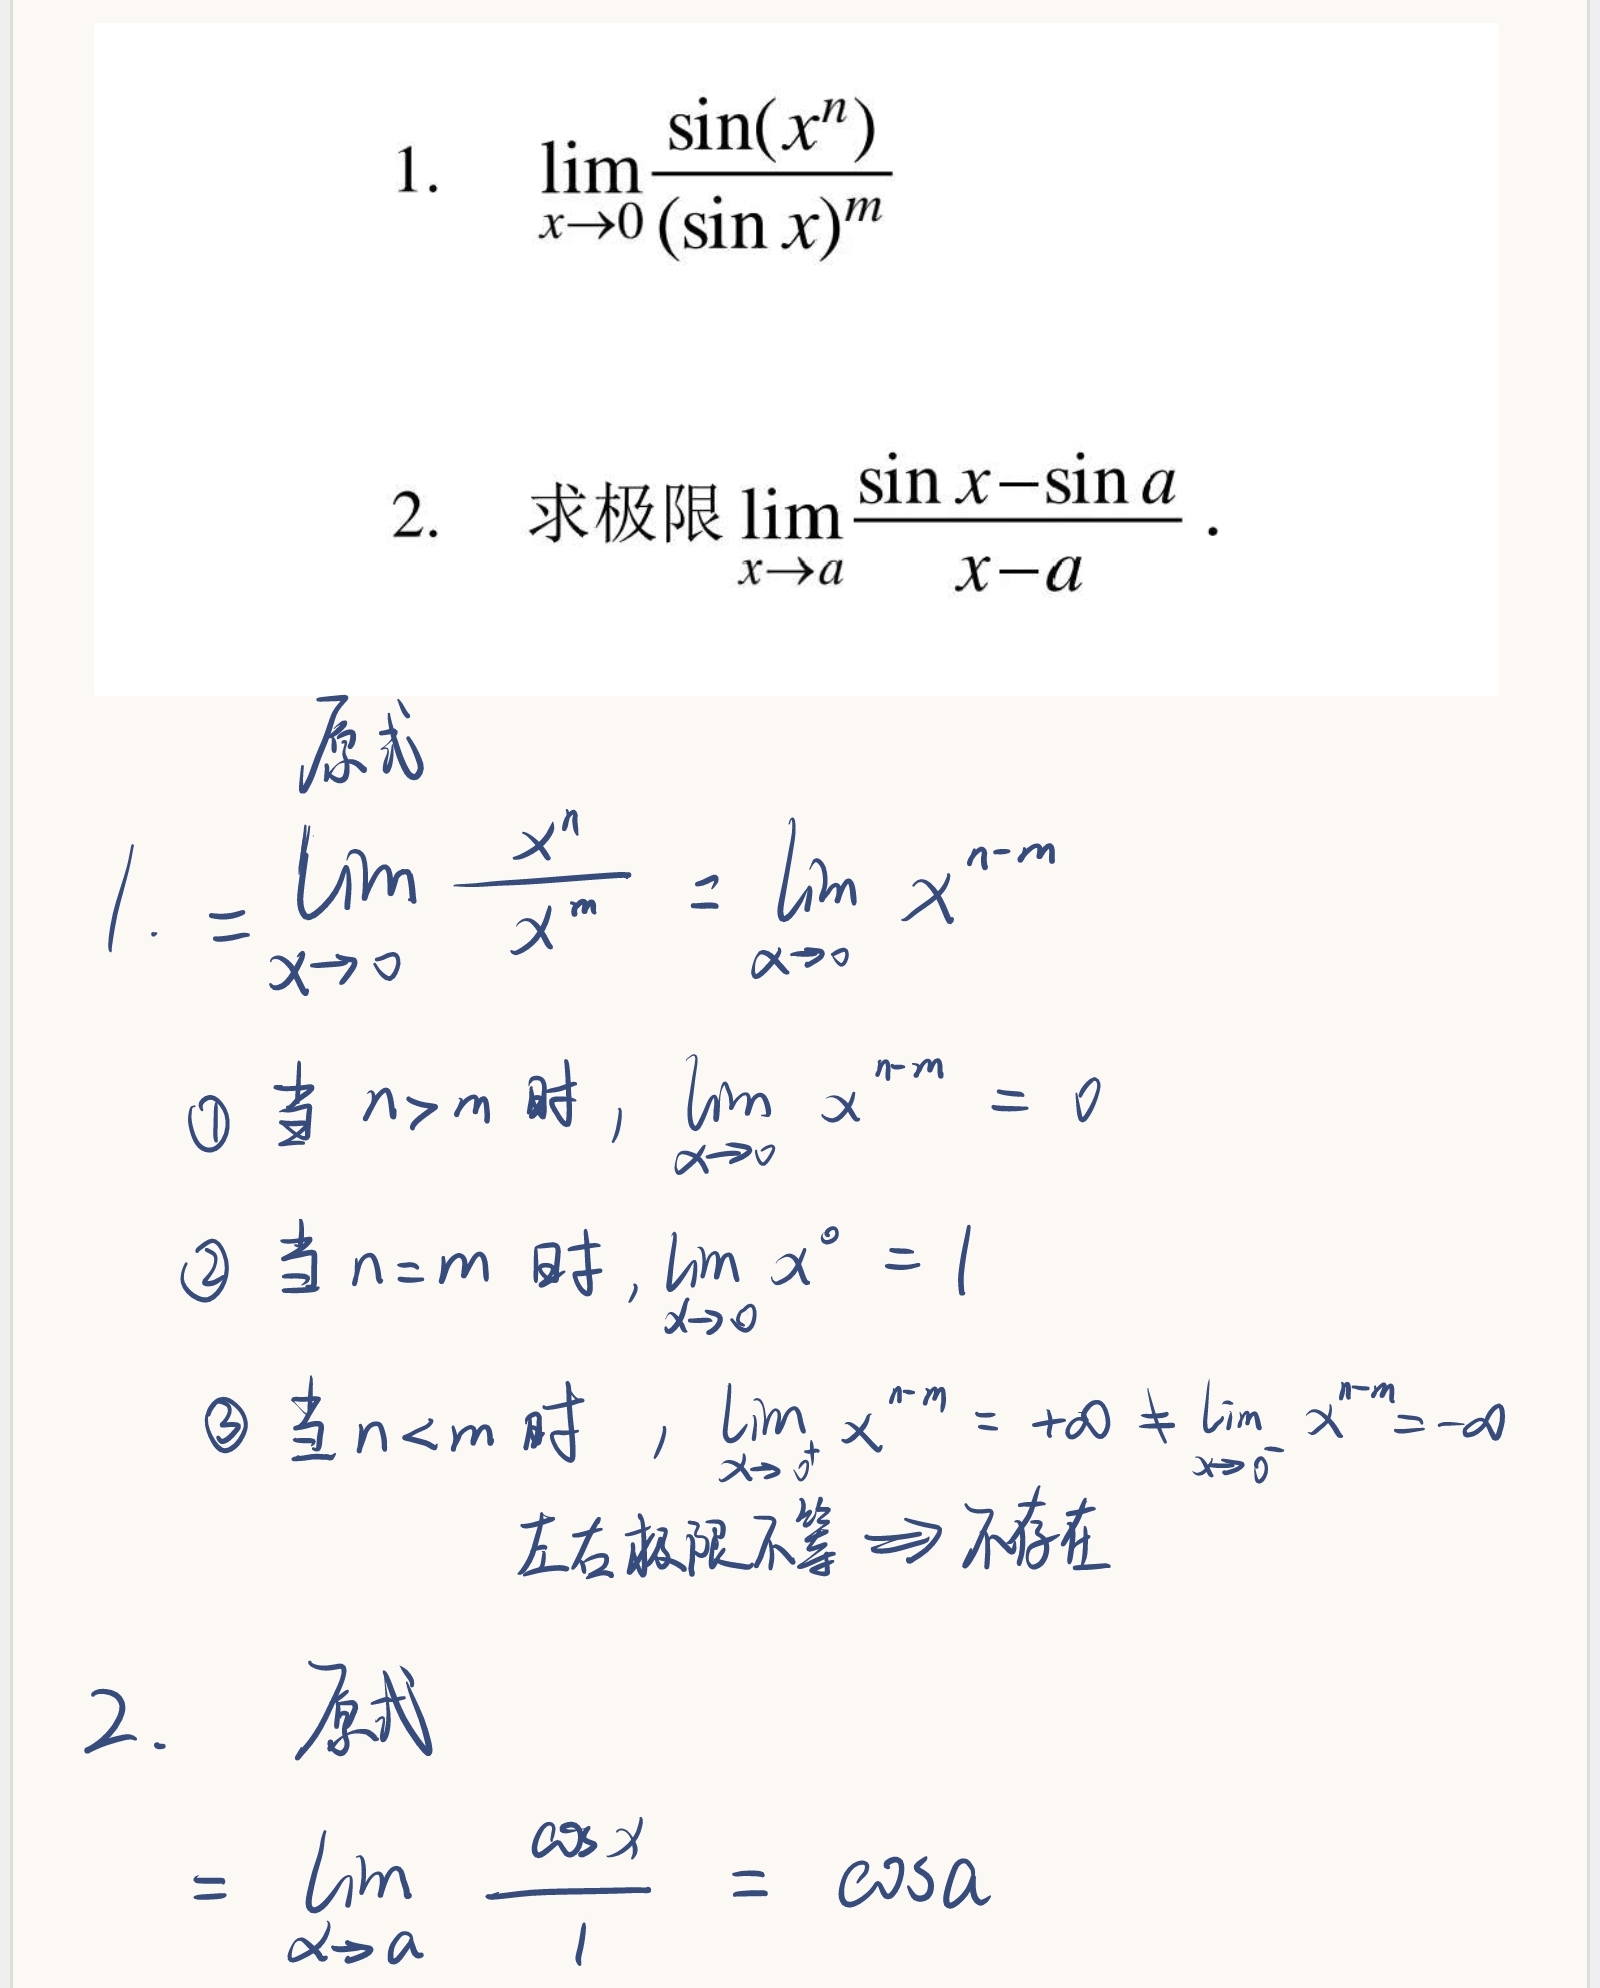 1. lim_{x→0} sin(x^n)/(sin x)^m
2. 求极限 lim_{x→a} (sin x−sin a)/(x−a) .
原式
1. = lim_{x→0} x^n/x^m = lim_{x→0} x^{n-m}
① 当 n>m 时, lim_{x→0} x^{n-m} = 0
② 当 n=m 时, lim_{x→0} x^0 = 1
③ 当 n<m 时, lim_{x→0^+} x^{n-m} = +∞ ≠ lim_{x→0^-} x^{n-m} = -∞
左右极限不等 ⇒ 不存在
2. 原式
= lim_{x→a} cos x/1 = cosa